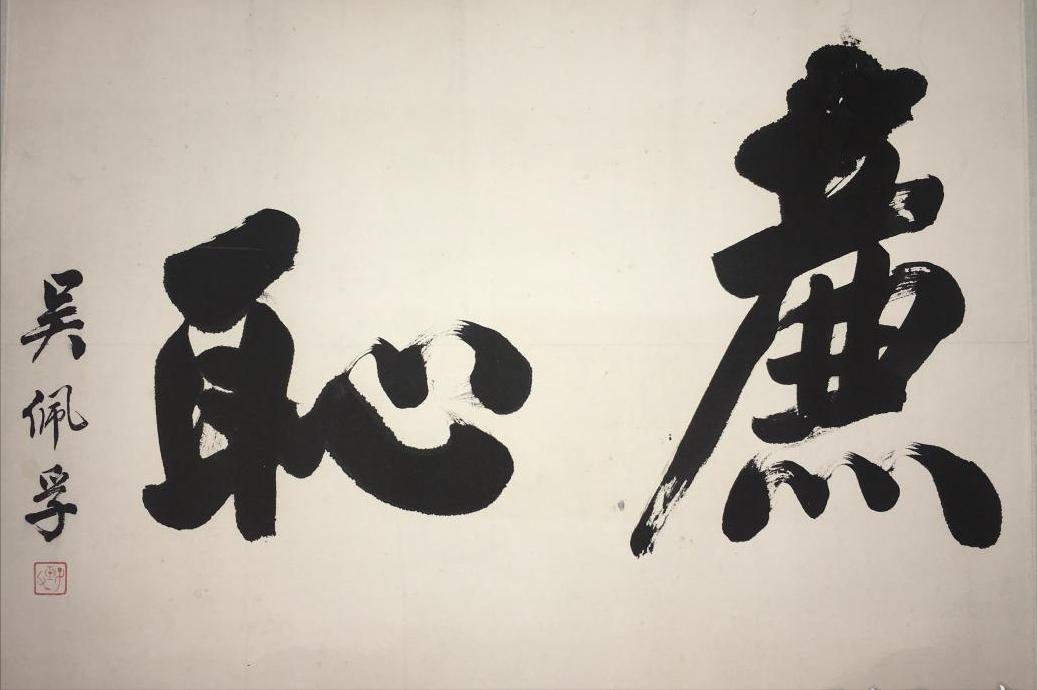 廉恥
吳佩孚